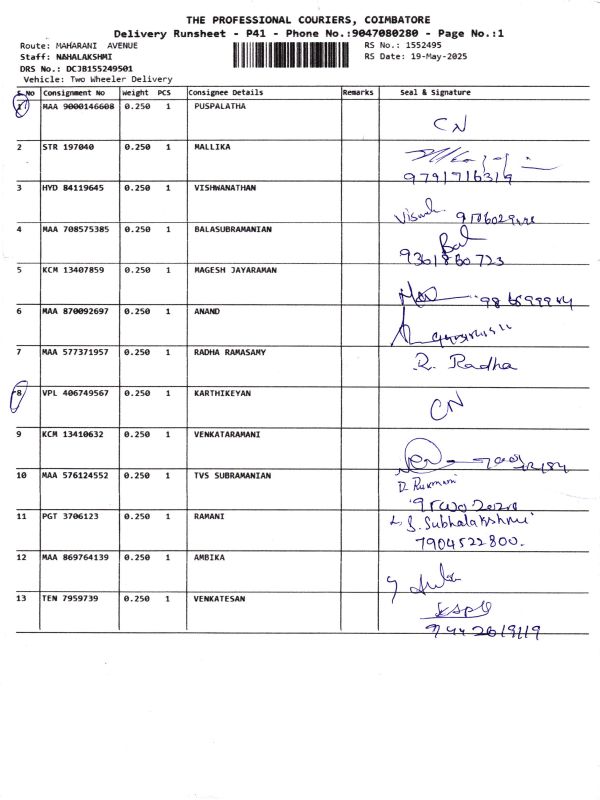 THE PROFESSIONAL COURIERS, COIMBATORE
Delivery Runsheet - P41 - Phone No.:9047080280 - Page No.:1
Route: MAHARANI AVENUE
RS No.: 1552495
Staff: MAHALAKSHMI
RS Date: 19-May-2025
DRS No.: DCJB155249501
Vehicle: Two Wheeler Delivery
S.No Consignment No Weight PCS Consignee Details Remarks Seal & Signature
1 MAA 9000146608 0.250 1 PUSPALATHA
CN
2 STR 197040 0.250 1 MALLIKA
9791716319
3 HYD 84119645 0.250 1 VISHWANATHAN
4 MAA 708575385 0.250 1 BALASUBRAMANIAN
Bal
9361860723
5 KCM 13407859 0.250 1 MAGESH JAYARAMAN
6 MAA 870092697 0.250 1 ANAND
7 MAA 577371957 0.250 1 RADHA RAMASAMY
R. Radha
8 VPL 406749567 0.250 1 KARTHIKEYAN
CN
9 KCM 13410632 0.250 1 VENKATARAMANI
10 MAA 576124552 0.250 1 TVS SUBRAMANIAN
D. Rukmani
11 PGT 3706123 0.250 1 RAMANI
S. Subhalakshmi
7904522800.
12 MAA 869764139 0.250 1 AMBIKA
13 TEN 7959739 0.250 1 VENKATESAN
9442619119